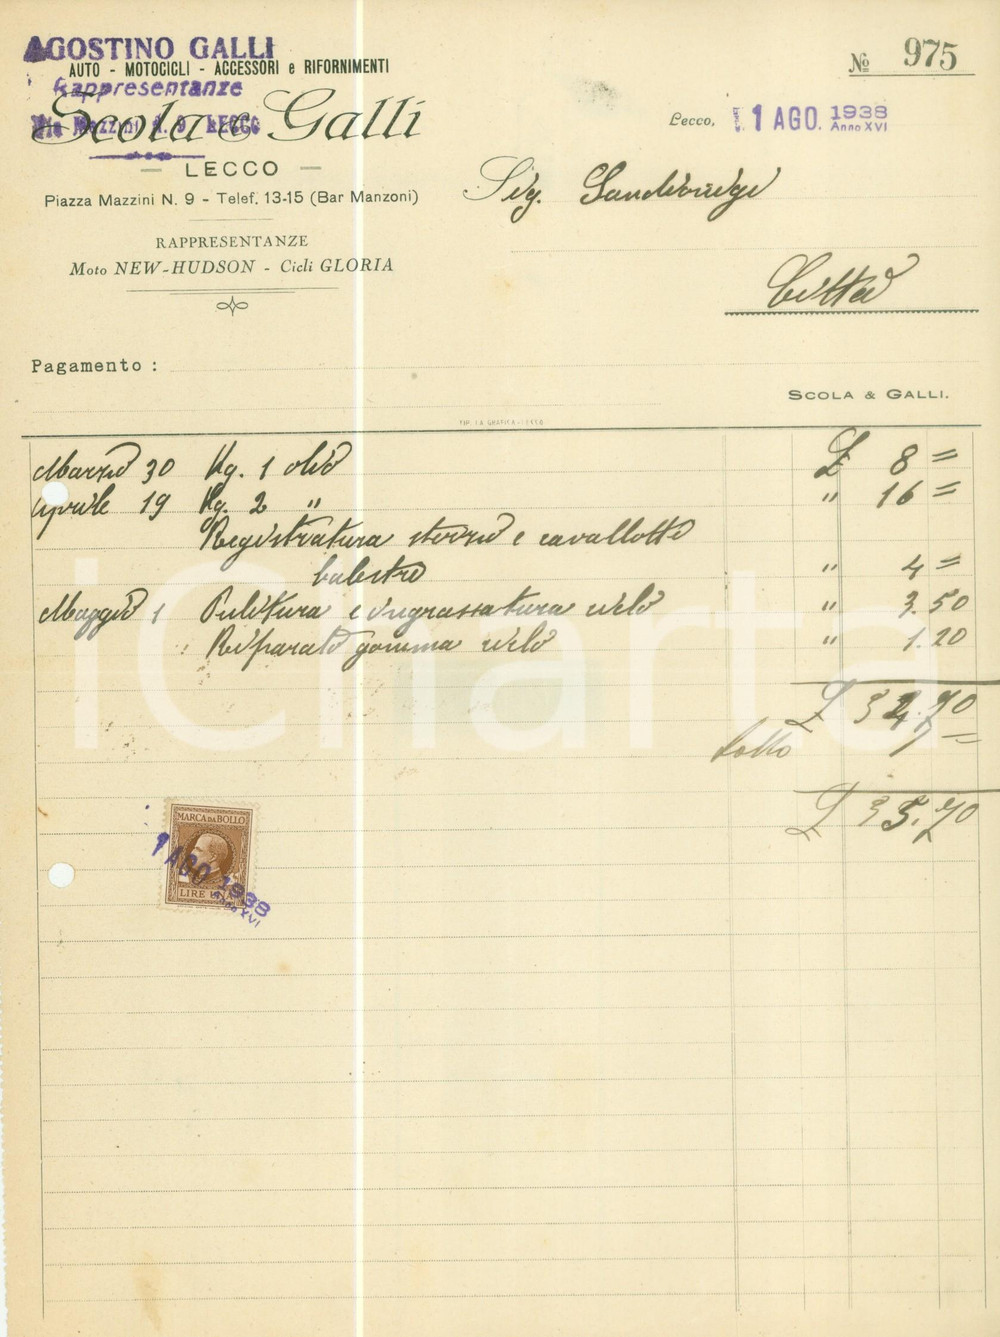 AGOSTINO GALLI
AUTO - MOTOCICLI - ACCESSORI e RIFORNIMENTI
Rappresentanze
Scola & Galli
Via Mazzini N. 9 LECCO
LECCO
Piazza Mazzini N. 9 - Telef. 13-15 (Bar Manzoni)
RAPPRESENTANZE
Moto NEW-HUDSON - Cicli GLORIA
No 975
Lecco, 1 AGO. 1938
Anno XVI
Sig.
Città
Pagamento :
SCOLA & GALLI.
TIP. LA GRAFICA - LECCO
Marzo 30 Kg. 1 olio £ 8 =
Aprile 19 Kg. 2 " " 16 =
Registratura sterzo e cavallotto
balestre " 4 =
Maggio 1 Pulitura e ingrassatura velo " 3.50
Riparato gomma velo " 1.20
£ 32.70
bollo
£ 33.70
MARCA DA BOLLO
LIRE
1 AGO 1938
Anno XVI
iCharta